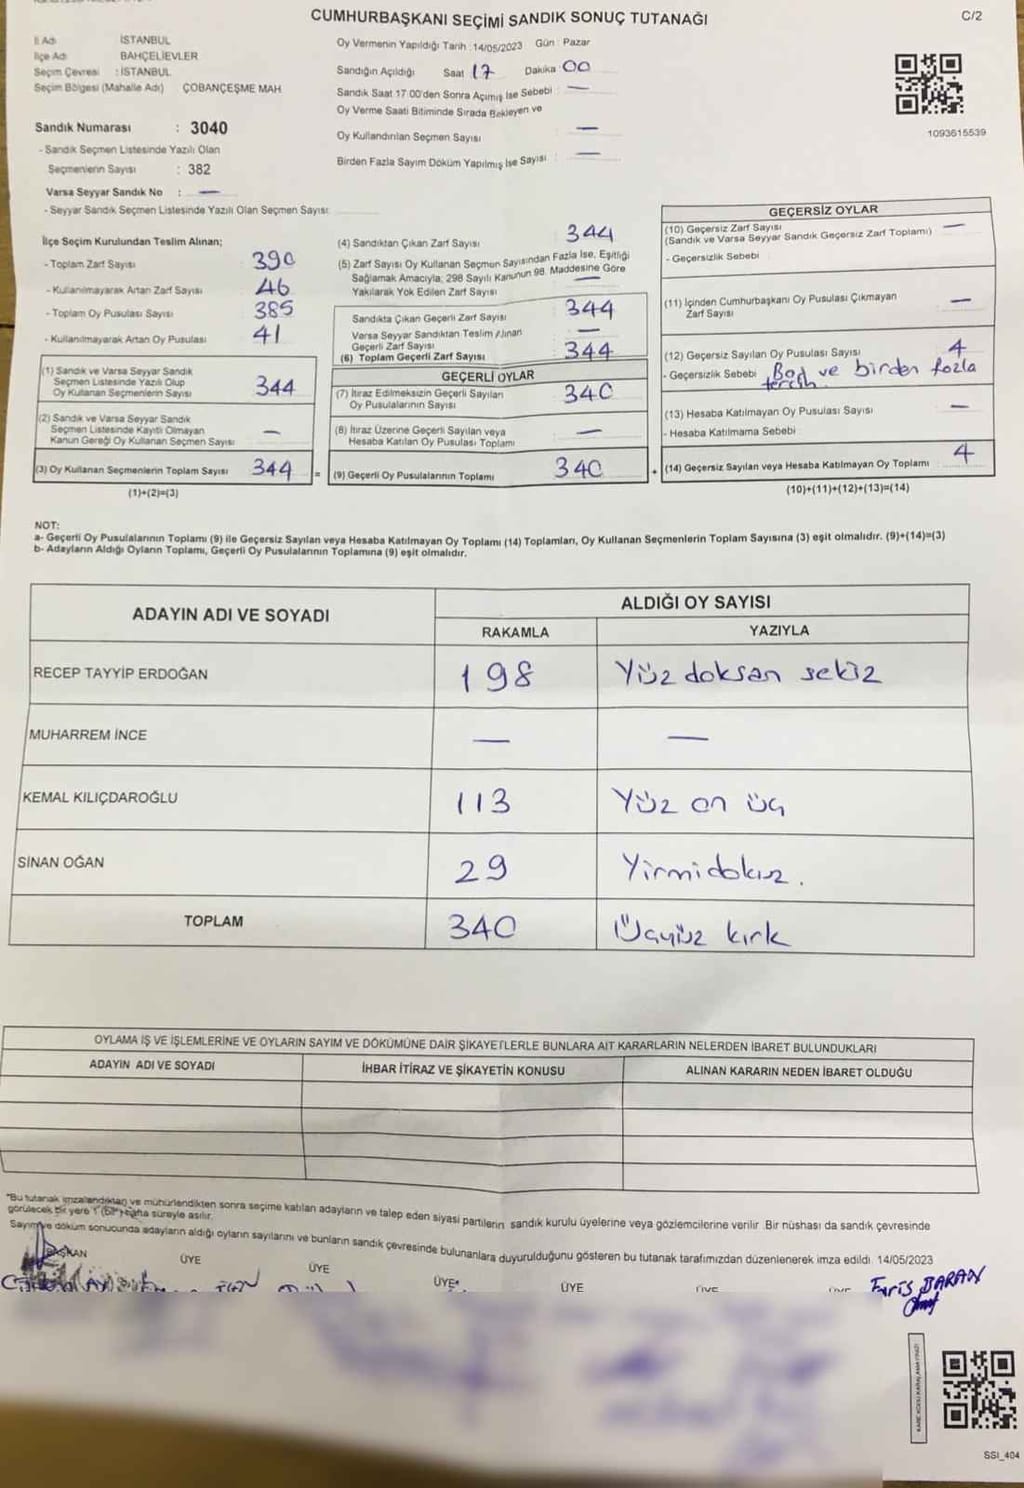 CUMHURBAŞKANI SEÇİMİ SANDIK SONUÇ TUTANAĞI
C/2
İl Adı İSTANBUL
İlçe Adı BAHÇELİEVLER
Seçim Çevresi : İSTANBUL
Seçim Bölgesi (Mahalle Adı) ÇOBANÇEŞME MAH
Sandık Numarası : 3040
- Sandık Seçmen Listesinde Yazılı Olan
Seçmenlerin Sayısı : 382
Varsa Seyyar Sandık No : —
- Seyyar Sandık Seçmen Listesinde Yazılı Olan Seçmen Sayısı:
Oy Vermenin Yapıldığı Tarih : 14/05/2023 Gün : Pazar
Sandığın Açıldığı Saat 17 Dakika 00
Sandık Saat 17:00'den Sonra Açımış İse Sebebi : —
Oy Verme Saati Bitiminde Sırada Bekleyen ve
Oy Kullandırılan Seçmen Sayısı : —
Birden Fazla Sayım Döküm Yapılmış İse Sayısı : —
1093615539
İlçe Seçim Kurulundan Teslim Alınan;
- Toplam Zarf Sayısı 390
- Kullanılmayarak Artan Zarf Sayısı 46
- Toplam Oy Pusulası Sayısı 385
- Kullanılmayarak Artan Oy Pusulası 41
(1) Sandık ve Varsa Seyyar Sandık
Seçmen Listesinde Yazılı Olup
Oy Kullanan Seçmenlerin Sayısı 344
(2) Sandık ve Varsa Seyyar Sandık
Seçmen Listesinde Kayıtlı Olmayan
Kanun Gereği Oy Kullanan Seçmen Sayısı —
(3) Oy Kullanan Seçmenlerin Toplam Sayısı 344 =
(1)+(2)=(3)
(4) Sandıktan Çıkan Zarf Sayısı 344
(5) Zarf Sayısı Oy Kullanan Seçmen Sayısından Fazla İse, Eşitliği
Sağlamak Amacıyla; 298 Sayılı Kanunun 98. Maddesine Göre
Yakılarak Yok Edilen Zarf Sayısı —
Sandıkta Çıkan Geçerli Zarf Sayısı 344
Varsa Seyyar Sandıktan Teslim Alınan
Geçerli Zarf Sayısı —
(6) Toplam Geçerli Zarf Sayısı 344
GEÇERLİ OYLAR
(7) İtiraz Edilmeksizin Geçerli Sayılan
Oy Pusulalarının Sayısı 340
(8) İtiraz Üzerine Geçerli Sayılan veya
Hesaba Katılan Oy Pusulası Toplamı —
(9) Geçerli Oy Pusulalarının Toplamı 340 +
GEÇERSİZ OYLAR
(10) Geçersiz Zarf Sayısı —
(Sandık ve Varsa Seyyar Sandık Geçersiz Zarf Toplamı)
- Geçersizlik Sebebi
(11) İçinden Cumhurbaşkanı Oy Pusulası Çıkmayan
Zarf Sayısı —
(12) Geçersiz Sayılan Oy Pusulası Sayısı 4
- Geçersizlik Sebebi Boş ve birden fazla
tercih
(13) Hesaba Katılmayan Oy Pusulası Sayısı —
- Hesaba Katılmama Sebebi
(14) Geçersiz Sayılan veya Hesaba Katılmayan Oy Toplamı 4
(10)+(11)+(12)+(13)=(14)
NOT:
a- Geçerli Oy Pusulalarının Toplamı (9) ile Geçersiz Sayılan veya Hesaba Katılmayan Oy Toplamı (14) Toplamları, Oy Kullanan Seçmenlerin Toplam Sayısına (3) eşit olmalıdır. (9)+(14)=(3)
b- Adayların Aldığı Oyların Toplamı, Geçerli Oy Pusulalarının Toplamına (9) eşit olmalıdır.
ADAYIN ADI VE SOYADI
ALDIĞI OY SAYISI
RAKAMLA YAZIYLA
RECEP TAYYİP ERDOĞAN 198 Yüz doksan sekiz
MUHARREM İNCE — —
KEMAL KILIÇDAROĞLU 113 Yüz on üç
SİNAN OĞAN 29 Yirmidokuz.
TOPLAM 340 Üçyüz kırk
OYLAMA İŞ VE İŞLEMLERİNE VE OYLARIN SAYIM VE DÖKÜMÜNE DAİR ŞİKAYETLERLE BUNLARA AİT KARARLARIN NELERDEN İBARET BULUNDUKLARI
ADAYIN ADI VE SOYADI İHBAR İTİRAZ VE ŞİKAYETİN KONUSU ALINAN KARARIN NEDEN İBARET OLDUĞU
"Bu tutanak imzalandıktan ve mühürlendikten sonra seçime katılan adayların ve talep eden siyasi partilerin sandık kurulu üyelerine veya gözlemcilerine verilir. Bir nüshası da sandık çevresinde
görülecek bir yere 1 (bir) hafta süreyle asılır.
Sayım ve döküm sonucunda adayların aldığı oyların sayılarını ve bunların sandık çevresinde bulunanlara duyurulduğunu gösteren bu tutanak tarafımızdan düzenlenerek imza edildi. 14/05/2023
BAŞKAN ÜYE ÜYE ÜYE ÜYE ÜYE
Faris BARAN
SSI_404